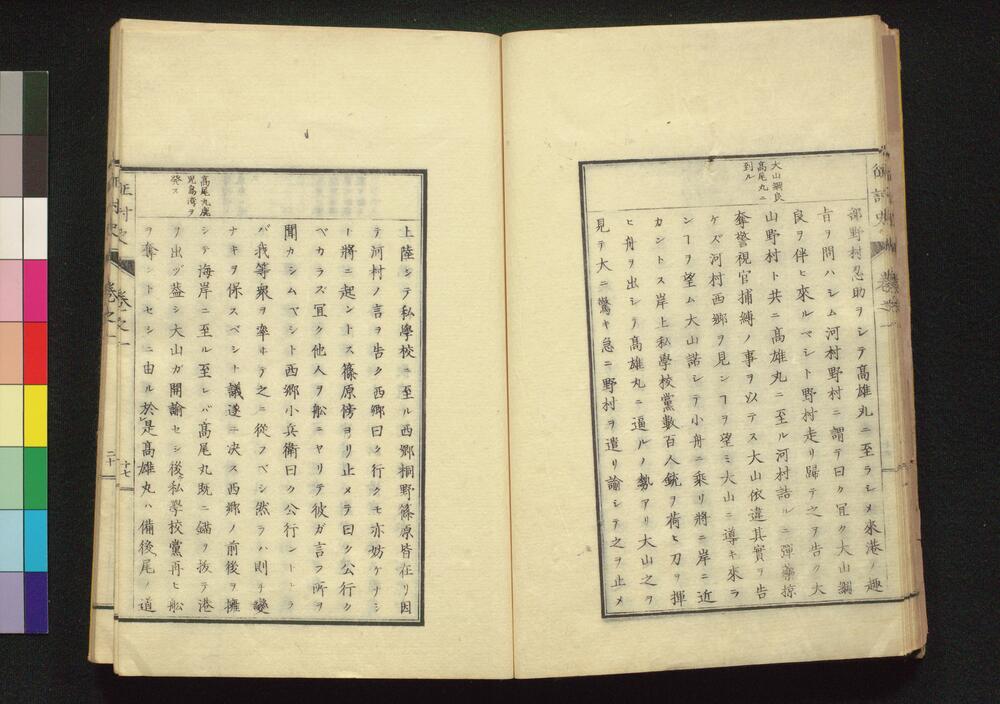 征討史
卷之一
大山綱良
高尾丸ニ
到ル
部野村忍助ヲシテ高雄丸ニ至ラシメ來港ノ趣
旨ヲ問ハシム河村野村ニ謂テ曰ク宜ク大山綱
良ヲ伴ヒ來ルマシト野村走リ歸テ之ヲ告ク大
山野村ト共ニ高雄丸ニ至ル河村詰ルニ彈藥掠
奪警視官捕縛ノ事ヲ以テス大山依違其實ヲ告
ケズ河村西郷ヲ見ンヿヲ望ミ大山ニ導キ來ラ
ンヿヲ望ム大山諾シテ小舟ニ乘リ將ニ岸ニ近
カントス岸上私學校黨數百人銃ヲ荷ヒ刀ヲ揮
ヒ舟ヲ出シテ高雄丸ニ逼ルノ勢アリ大山之ヲ
見テ大ニ驚キ急ニ野村ヲ遣リ諭シテ之ヲ止メ
上陸シテ私學校ニ至ル西郷桐野篠原皆在リ因
テ河村ノ言ヲ告ク西郷曰ク行クモ亦妨ケナシ
ト將ニ起ントス篠原傍ヨリ止メテ曰ク公行ク
ベカラズ宜ク他人ヲ船ニヤリテ彼ガ言フ所ヲ
聞カシムベシト西郷小兵衛曰ク公行ントナラ
バ我等衆ヲ率ヰテ之ニ從フベシ然ラハ則チ變
ナキヲ保スベシト議遂ニ决ス西郷ノ前後ヲ擁
シテ海岸ニ至ル至レバ高尾丸既ニ錨ヲ拔テ港
ヲ出ヅ蓋シ大山ガ開諭セシ後私學校黨再ヒ船
ヲ奪ントセシニ由ル於是高雄丸ハ備後尾ノ道
高尾丸鹿
児島湾ヲ
発ス
征討史
卷之一
十七
二十